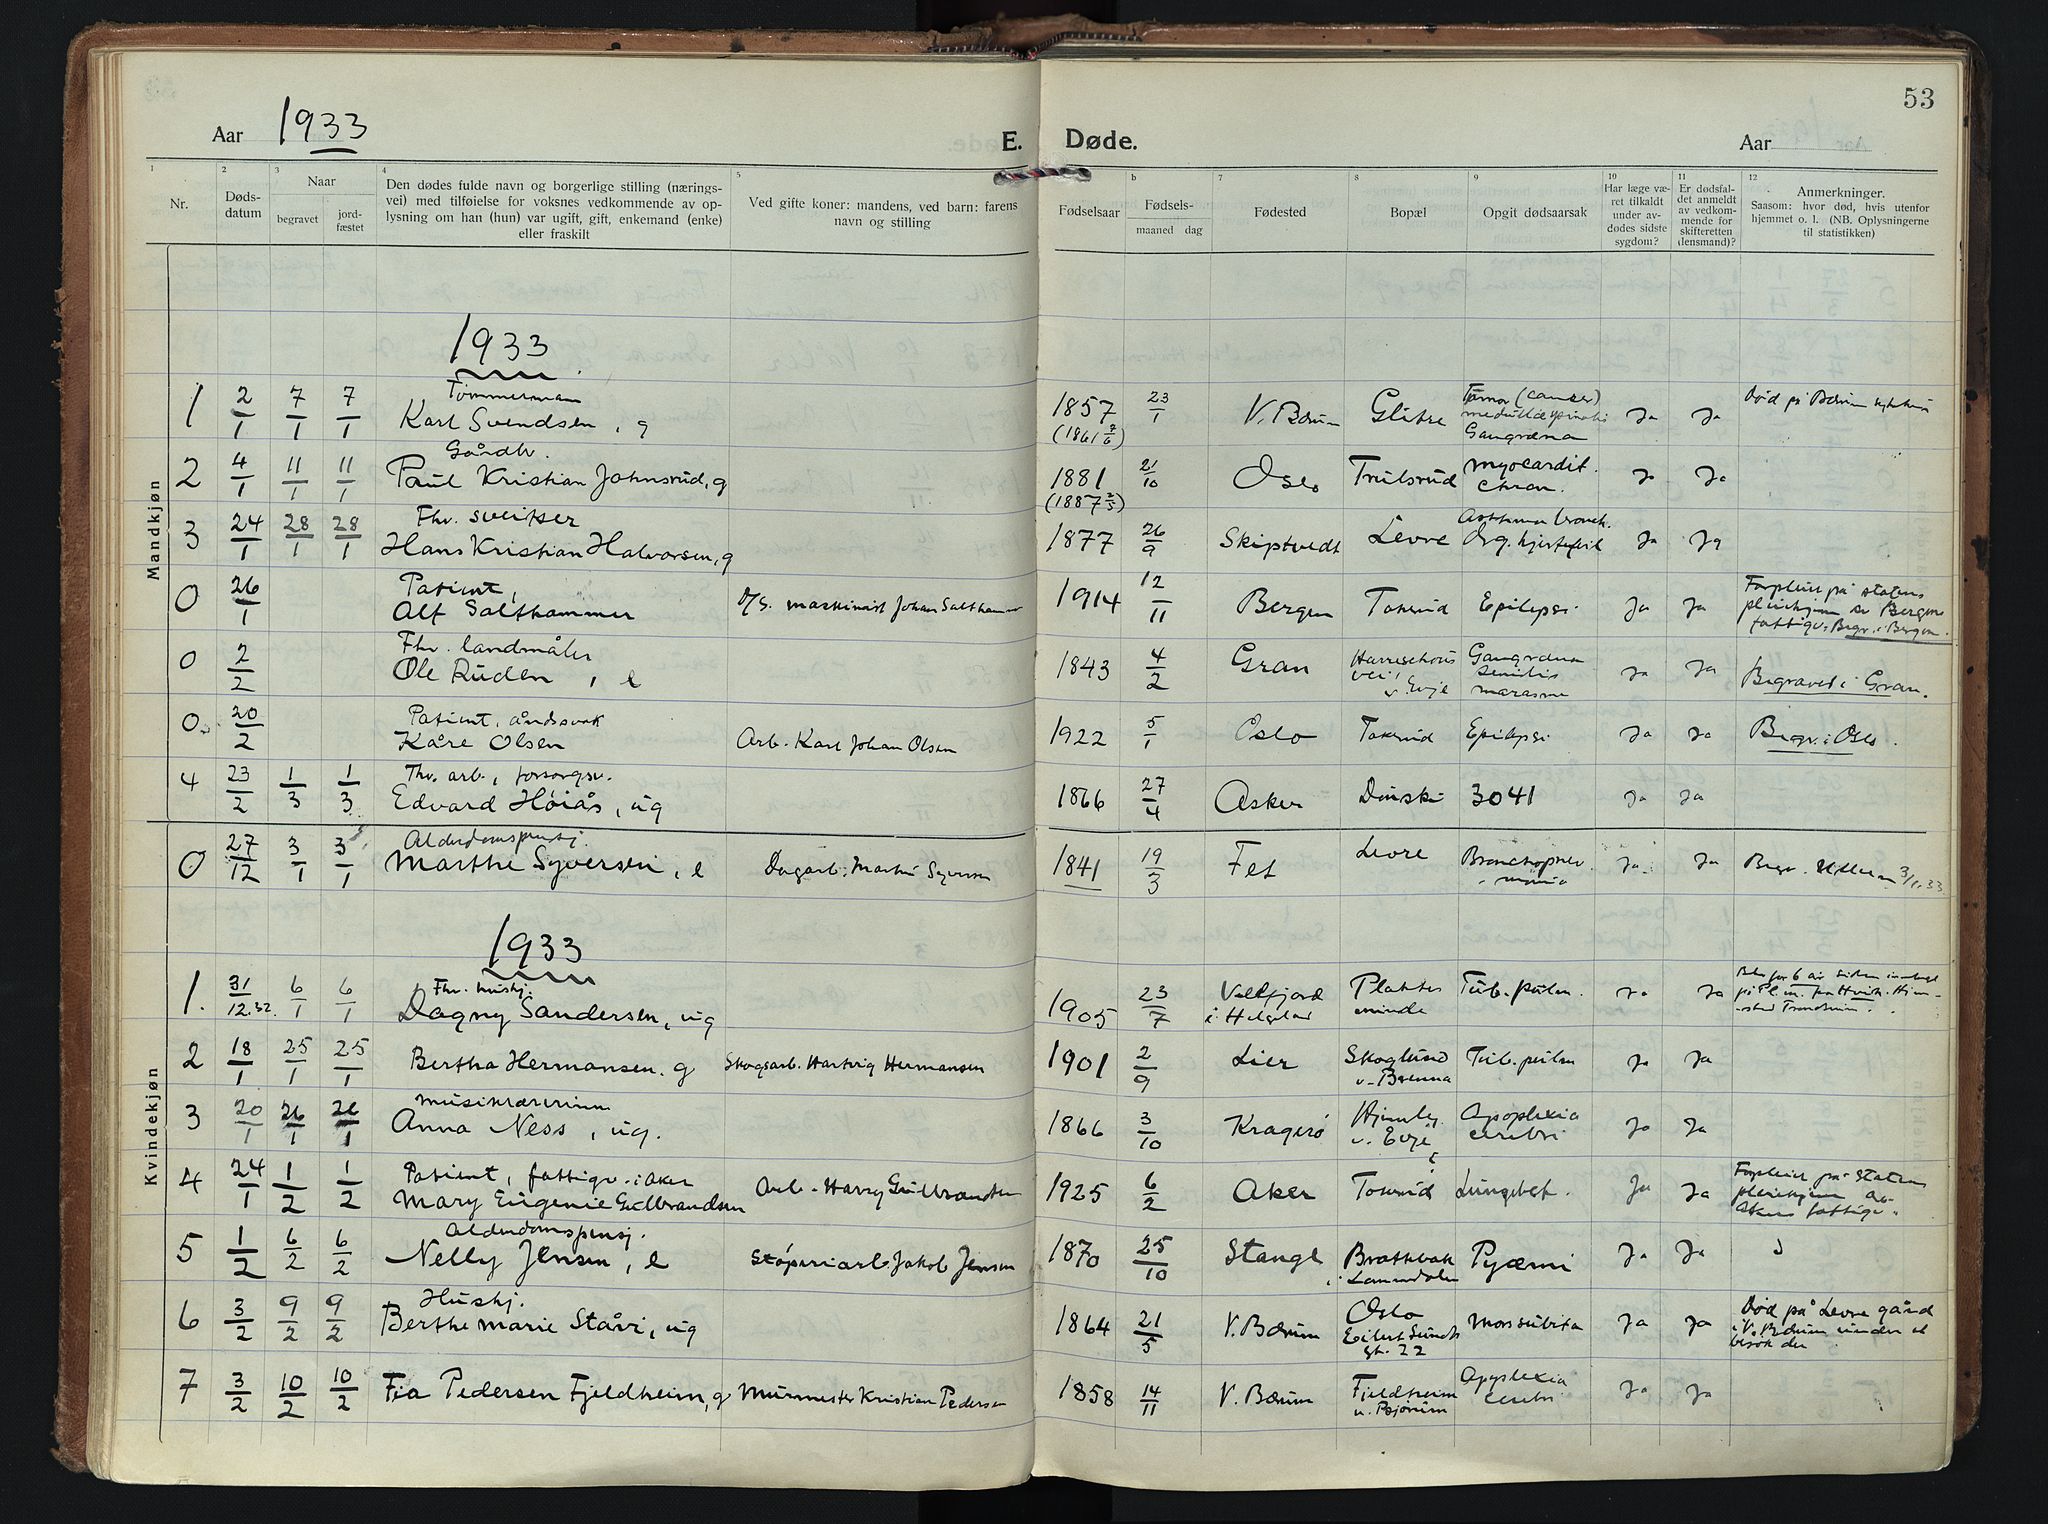 53
Aar 1933 E. Døde. Aar
1 2 3 4 5 b 7 8 9 10 11 12
Nr.
Døds-
datum
Naar
begravet
jord-
fæstet
Den dødes fulde navn og borgerlige stilling (nærings-
vei) med tilføielse for voksnes vedkommende av op-
lysning om han (hun) var ugift, gift, enkemand (enke)
eller fraskilt
Ved gifte koner: mandens, ved barn: farens
navn og stilling
Fødselsaar
Fødsels-
maaned dag
Fødested
Bopæl
Opgit dødsaarsak
Har læge væ-
ret tilkaldt
under av-
dødes sidste
sygdom?
Er dødsfal-
det anmeldt
av vedkom-
mende for
skifteretten
(lensmand)?
Anmerkninger.
Saasom: hvor død, hvis utenfor
hjemmet o. l. (NB. Oplysningerne
til statistikken)
Mandkjøn
1933
Tømmermann
1 2/1 7/1 7/1 Karl Svendsen, g 1857 23/1 V. Bærum Glitre Tumor (cancer) Ja Ja Død på Bærum
(1861 7/6) Gangræna
Gårdbr.
2 4/1 11/1 11/1 Paul Kristian Johnsrud, g 1881 21/10 Oslo Trulsrud myocardit. Ja Ja
(1887 2/5) chron.
Fhv. sveitser
3 24/1 28/1 28/1 Hans Kristian Halvorsen, g 1877 26/9 Skiptvedt Levre Asthma bronch. Org. hjertefeil Ja Ja
Patient,
0 26/1 Alf Salthammer maskinist Johan Salthammer 1914 12/11 Bergen Tokerud Epilepsi Ja Ja Forpleiet på statens
pleiehjem av Bergens
fattigv. Begr. i Bergen.
Fhv. landmåler
0 2/2 Ole Ruden, e 1843 4/2 Gran vei, v. Evje Gangræna senilis marasme Ja Ja Begravet i Gran.
Patient, åndssvak
0. 20/2 Kåre Olsen Arb. Karl Johan Olsen 1922 5/1 Oslo Tokerud Epilepsi Ja Ja Begr. i Oslo.
Fhv. arb., forsorgsv.
4 23/2 1/3 1/3 Edvard Høiås, ug 1866 27/4 Asker Dønski 3041 Ja Ja
Alderdomspensj.
0 27/12 3/1 3/1 Marthe Syversen, e Dagarb. Martin Syversen 1841 19/3 Fet Levre Bronchopneu-
monia Ja Ja Begr. Ullern 3/1.33
Kvindekjøn
1933
Fhv. hushj.
1. 31/12.32. 6/1 6/1 Dagny Sandersen, ug 1905 23/7 Velfjord
i Helgeland Plattes
minde Tub. pulm. Ja Ja for 6 år siden
på Pl. m. fra Hvik. Hjem-
sted Trondheim.
2 18/1 25/1 25/1 Bertha Hermansen. g Skogsarb. Hartvig Hermansen 1901 2/9 Lier Skoglund
v. Brenna Tub. pulm Ja Ja
musiklærerinne
3 20/1 26/1 26/1 Anna Ness, ug. 1866 3/10 Kragerø
v. Evje Apoplexia
cerebri Ja Ja
Patient, fattigv. i Aker
4 24/1 1/2 1/2 Mary Eugenie Gulbrandsen Arb. Harry Gulbrandsen 1925 6/2 Aker Tokerud Lungebet. Ja Ja Forpleiet på Statens
pleiehjem av
Akers fattigv.
Alderdomspensj.
5 1/2 6/2 6/2 Nelly Jensen, e Støperiarb. Jakob Jensen 1870 25/10 Stange Brattbakk
i Lommedalen Pyæmi Ja Ja
Hushj.
6 3/2 9/2 9/2 Berthe Marie Ståvi, ug 1864 21/5 V. Bærum Oslo
Eilert Sundts
gt. 22 Mors subita Ja Ja Død på Levre gård
i V. Bærum under et
besøk der
7 3/2 10/2 10/2 Fia Pedersen Fjeldheim, g Murmester Kristian Pedersen 1858 14/11 V. Bærum Fjeldheim
v. Bjørum Apoplexia
cerebri Ja Ja